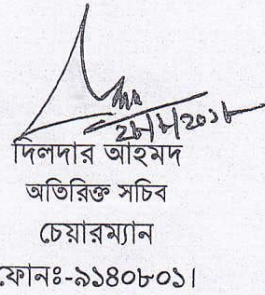 দিলদার আহমদ
অতিরিক্ত সচিব
চেয়ারম্যান
ফোনঃ-৯১৪০৮০১।